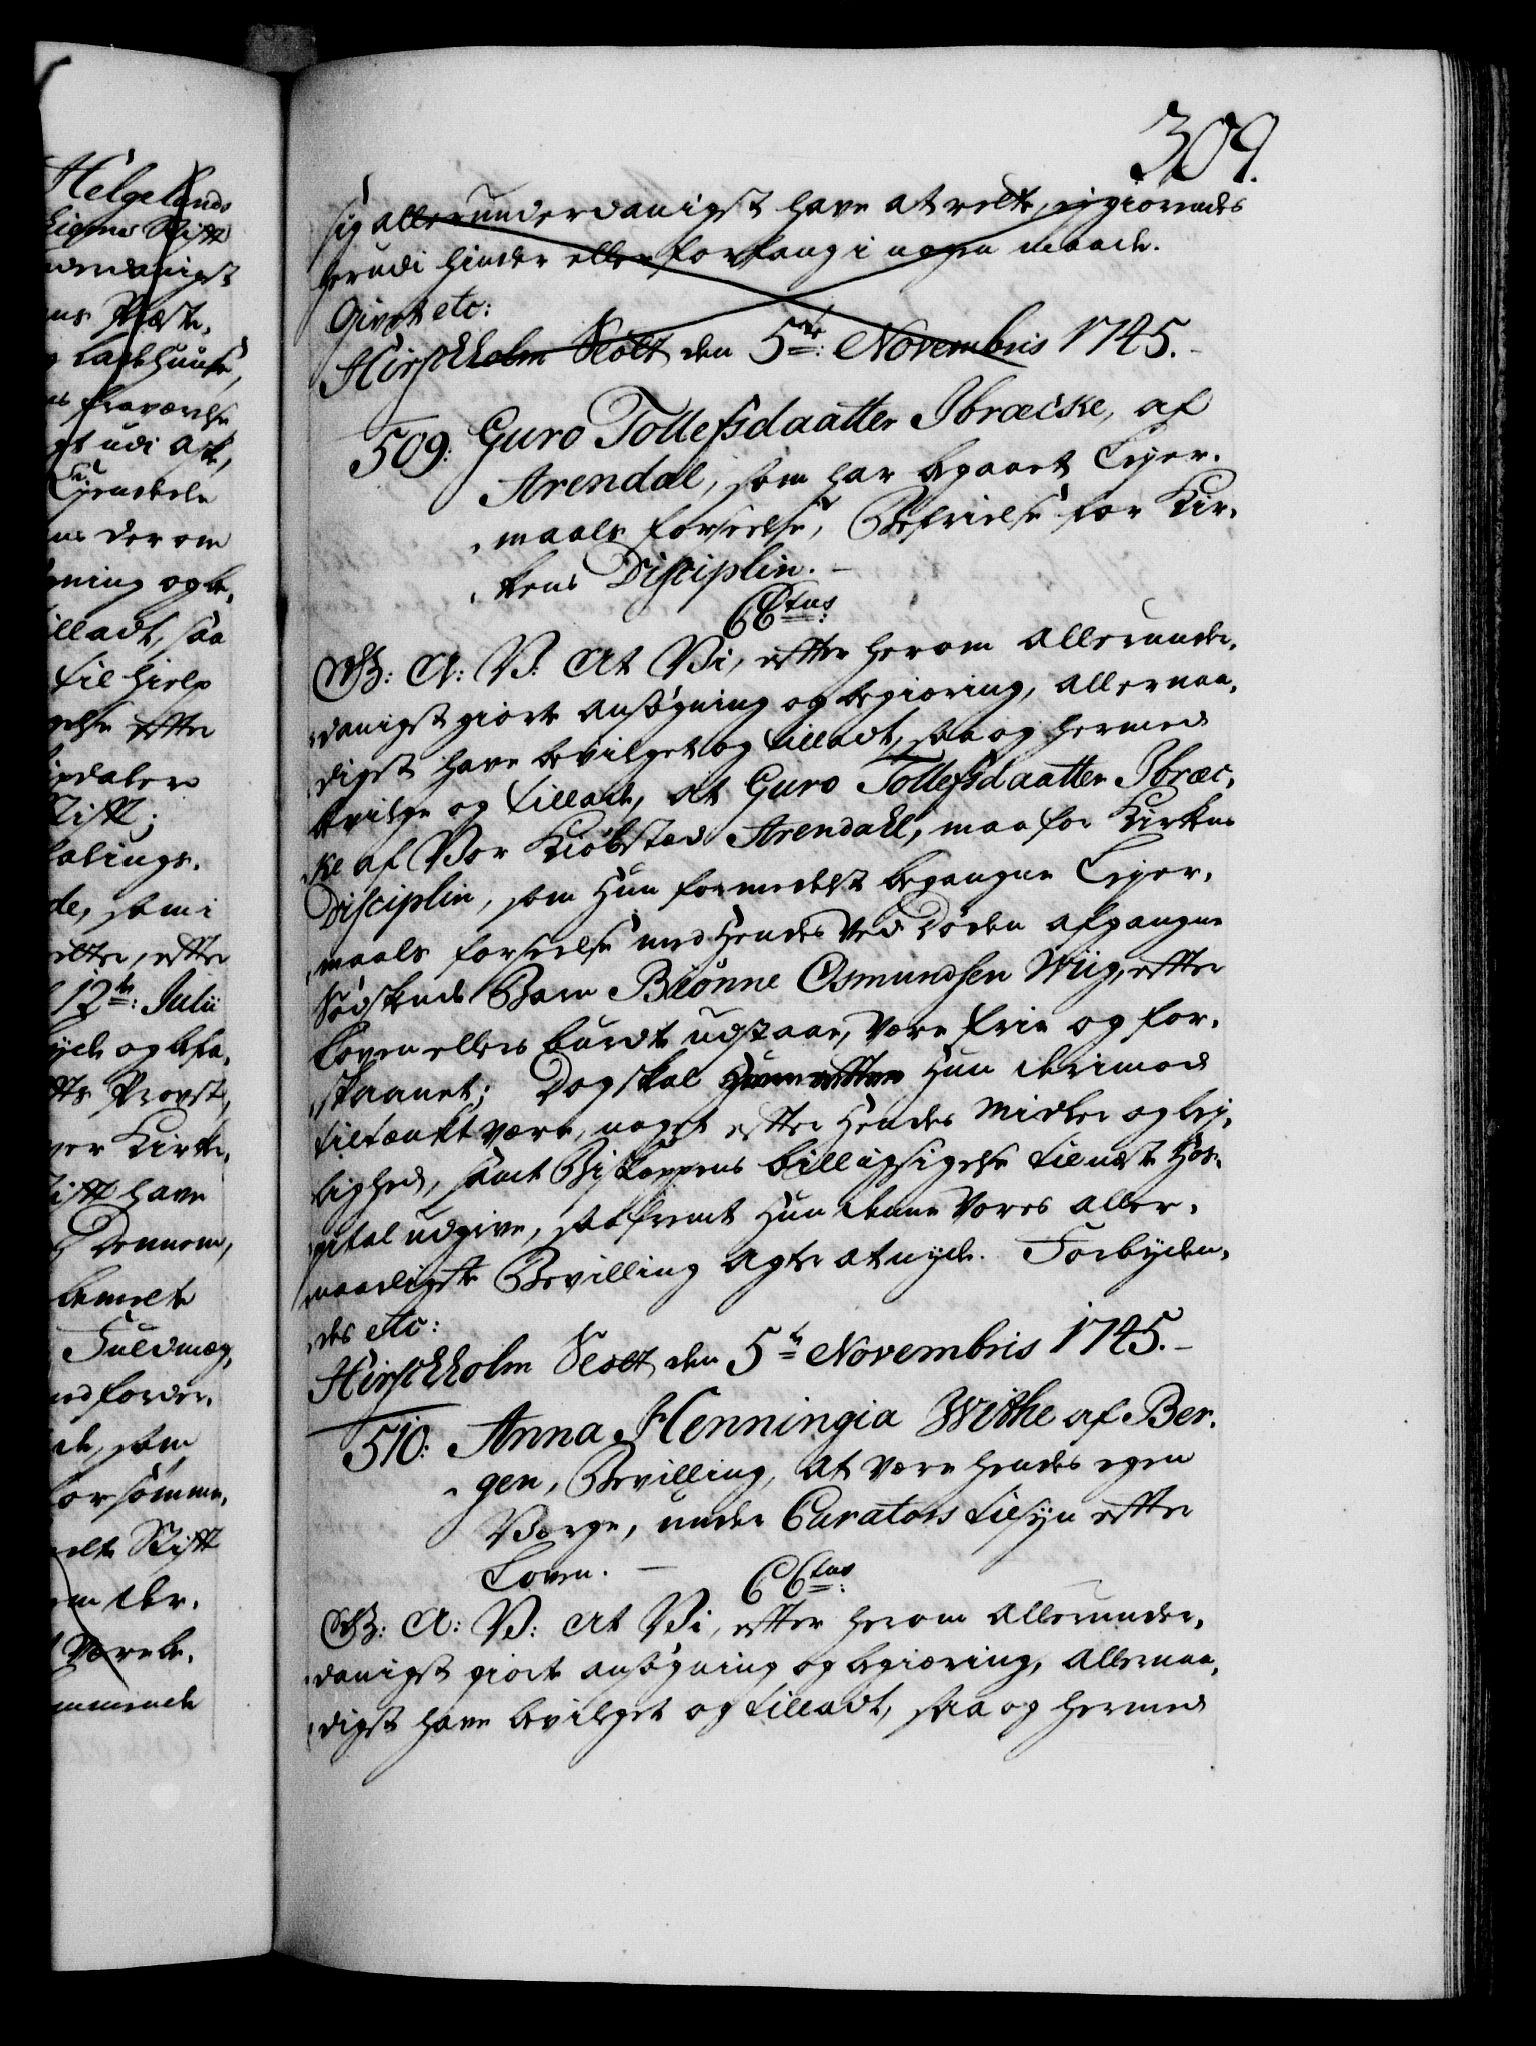 309.
sig allerunderdanigst have at rette, ey giørendes
herudi hinder eller forfang i nogen maade.
Givet etc:
Hirschholm Slott den 5te: Novembris 1745.
509: Guro Tollefsdaatter Ibræcke, af
Arendal, som har begaaet Leyer-
maals forseelse, Befrielse for Kir-
kens Disciplin.
CCtus:
G: A: V: At Vi, efter herom allerunder-
danigst giorte ansøgning og begiæring, allernaa-
digst have bevilget og tilladt, saa og hermed
bevilge og tillade, at Guro Tollefsdaatter Ibræc-
ke af Vor Kiøbstad Arendahl, maa for Kirkens
Disciplin, som hun formedelst begangne Leyer-
maals forseelse med hendes ved Døden afgangne
Sødskende Barn Biønne Osmundsen Wiig, efter
Loven ellers burdte udstaae, være frie og for-
skaanet; Dog skal hun derimod
tiltænkt være, noget efter hendes Midler og ley-
lighed, samt Biskoppens billigsigelse til næste Hos-
pital udgive, saafremt hun denne Vores aller-
naadigste Bevilling agter at nyde. Forbyden-
des etc:
Hirschholm Slott den 5te Novembris 1745.
510: Anna Henningia Withe af Ber-
gen, Bevilling, at være hendes egen
Værge, under Curators tilsyn efter
Loven.
CCtus:
G: A: V: At Vi, efter herom allerunder-
danigst giorte ansøgning og begiæring, allernaa-
digst have bevilget og tilladt, saa og hermed